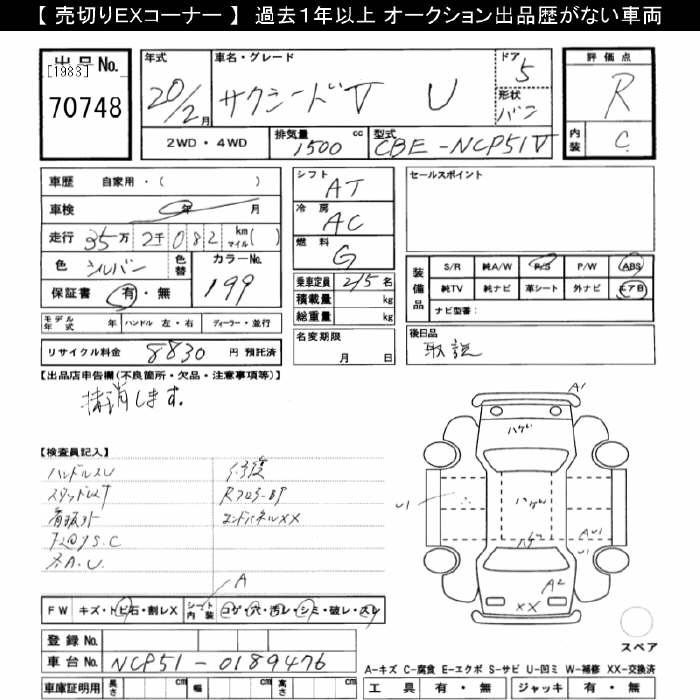 【 売切りEXコーナー 】 過去1年以上 オークション出品歴がない車両
出品No.
[1983]
70748
年式
20/2月
車名・グレード
サクシードV U
ドア
5
形状
バン
2WD・4WD
排気量
1500 cc
型式
CBE-NCP51V
評価点
R
内装
C
車歴 自家用・( )
車検 年 月
走行 35万 2千 082 km マイル( )
色 シルバー
色替
カラーNo.
199
保証書 有・無
モデル年式 年 ハンドル 左・右 ディーラー・並行
リサイクル料金 8830 円 預託済
シフト
AT
冷房
AC
燃料
G
乗車定員 2/5名
積載量 kg
総重量 kg
名変期限
月 日
セールスポイント
装備品
S/R 純A/W P/S P/W ABS
純TV 純ナビ 革シート 外ナビ エアB
ナビ型番:
後日品
取説
【出品店申告欄(不良箇所・欠品・注意事項等)】
抹消します。
【検査員記入】
ハンドルスレ
修復
エンドパネルXX
A
FW キズ・トビ石・割レX
シート内装 コゲ・穴・汚レ・シミ・破レ・スレ
登録No.
車台No. NCP51-0189476
車庫証明用 長さ cm 幅 cm 高さ cm
A1
ハゲ
U1
ハゲ
ハゲ
AU1
A2
XX
スペア
A-キズ C-腐食 E-エクボ S-サビ U-凹ミ W-補修 XX-交換済
工具 有・無 ジャッキ 有・無